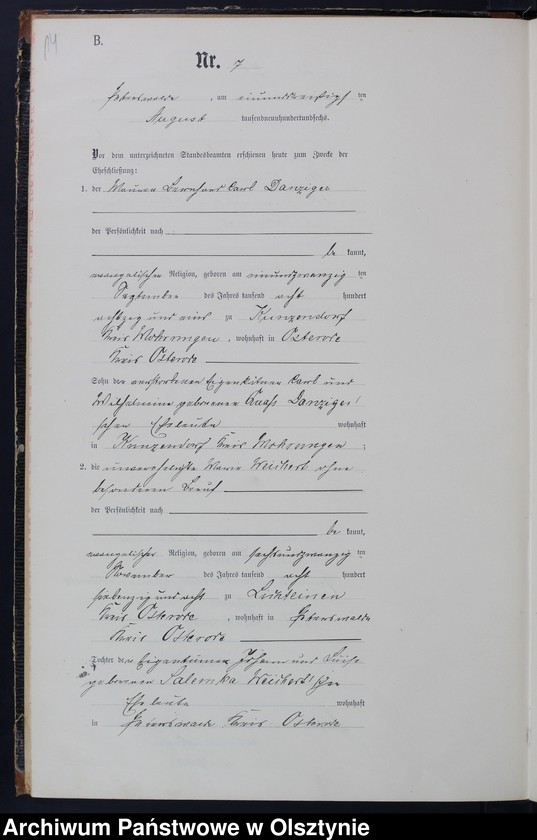 B.
Nr. 7
am ten
August tausendneunhundertundsechs.
Vor dem unterzeichneten Standesbeamten erschienen heute zum Zwecke der
Eheschließung:
1. der Maurer Bernhard Carl Danziger
der Persönlichkeit nach
be kannt,
evangelischer Religion, geboren am einundzwanzig ten
September des Jahres tausend acht hundert
achtzig und eins zu Kunzendorf
Kreis Mohrungen, wohnhaft in Osterode
Kreis Osterode
Sohn der verstorbenen Eigenkätner Carl und
Wilhelmine geborenen Danziger'
schen Eheleute wohnhaft
in Kunzendorf Kreis Mohrungen ;
2. die unverehelichte Marie Weichert ohne
besonderen Beruf
der Persönlichkeit nach
be kannt,
evangelischer Religion, geboren am sechsundzwanzig ten
November des Jahres tausend acht hundert
siebenzig und acht zu Locken
Kreis Osterode, wohnhaft in
Kreis Osterode
Tochter der Eigentümer Johann und Luise
geborenen Salewska Weichert'schen
Eheleute wohnhaft
in Kreis Osterode
Archiwum Państwowe w Olsztynie